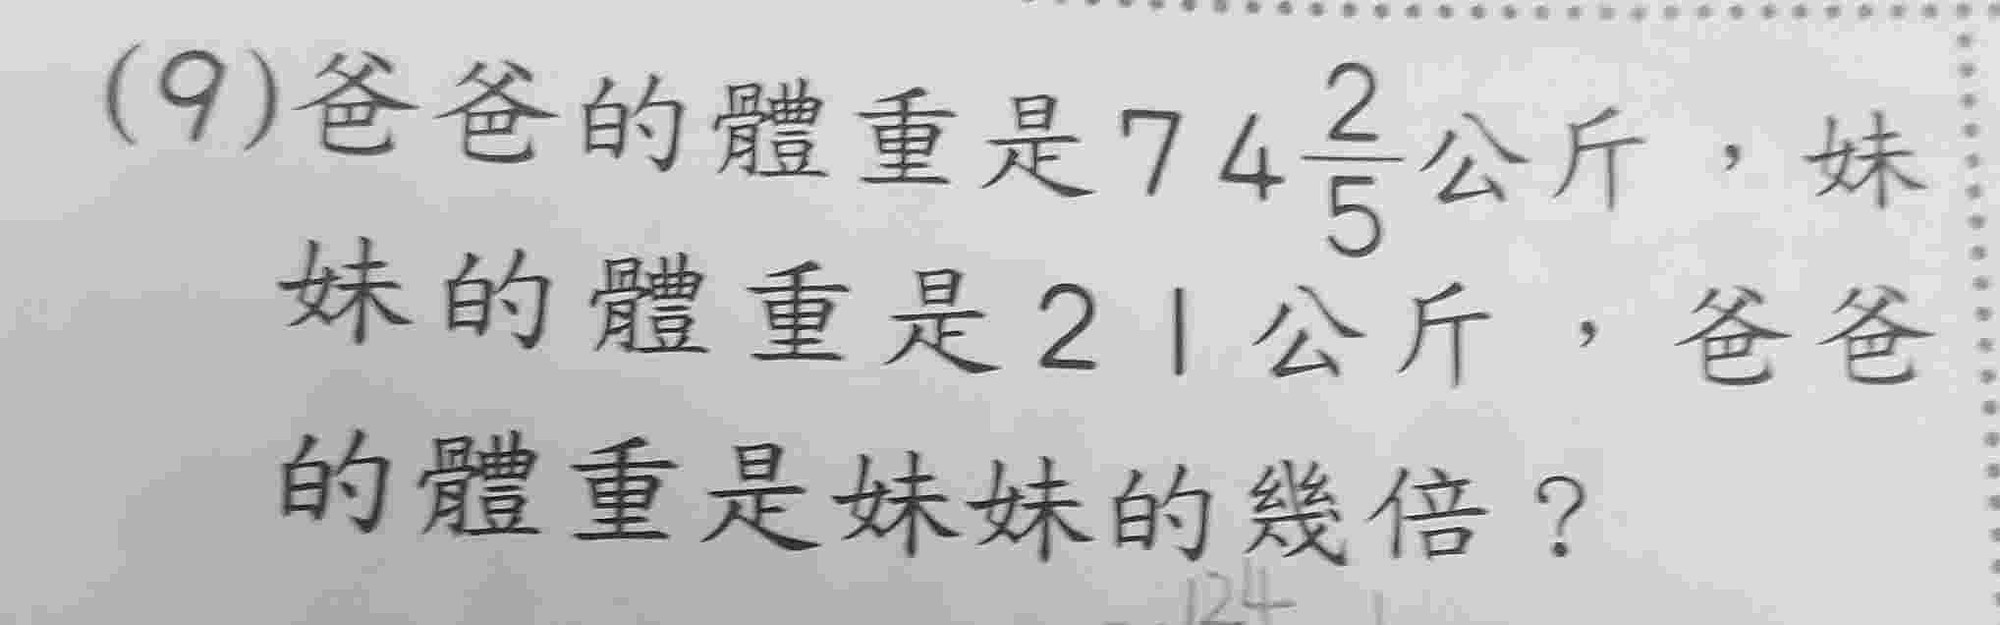 (9)爸爸的體重是74 2/5公斤，妹
妹的體重是21公斤，爸爸
的體重是妹妹的幾倍？
124